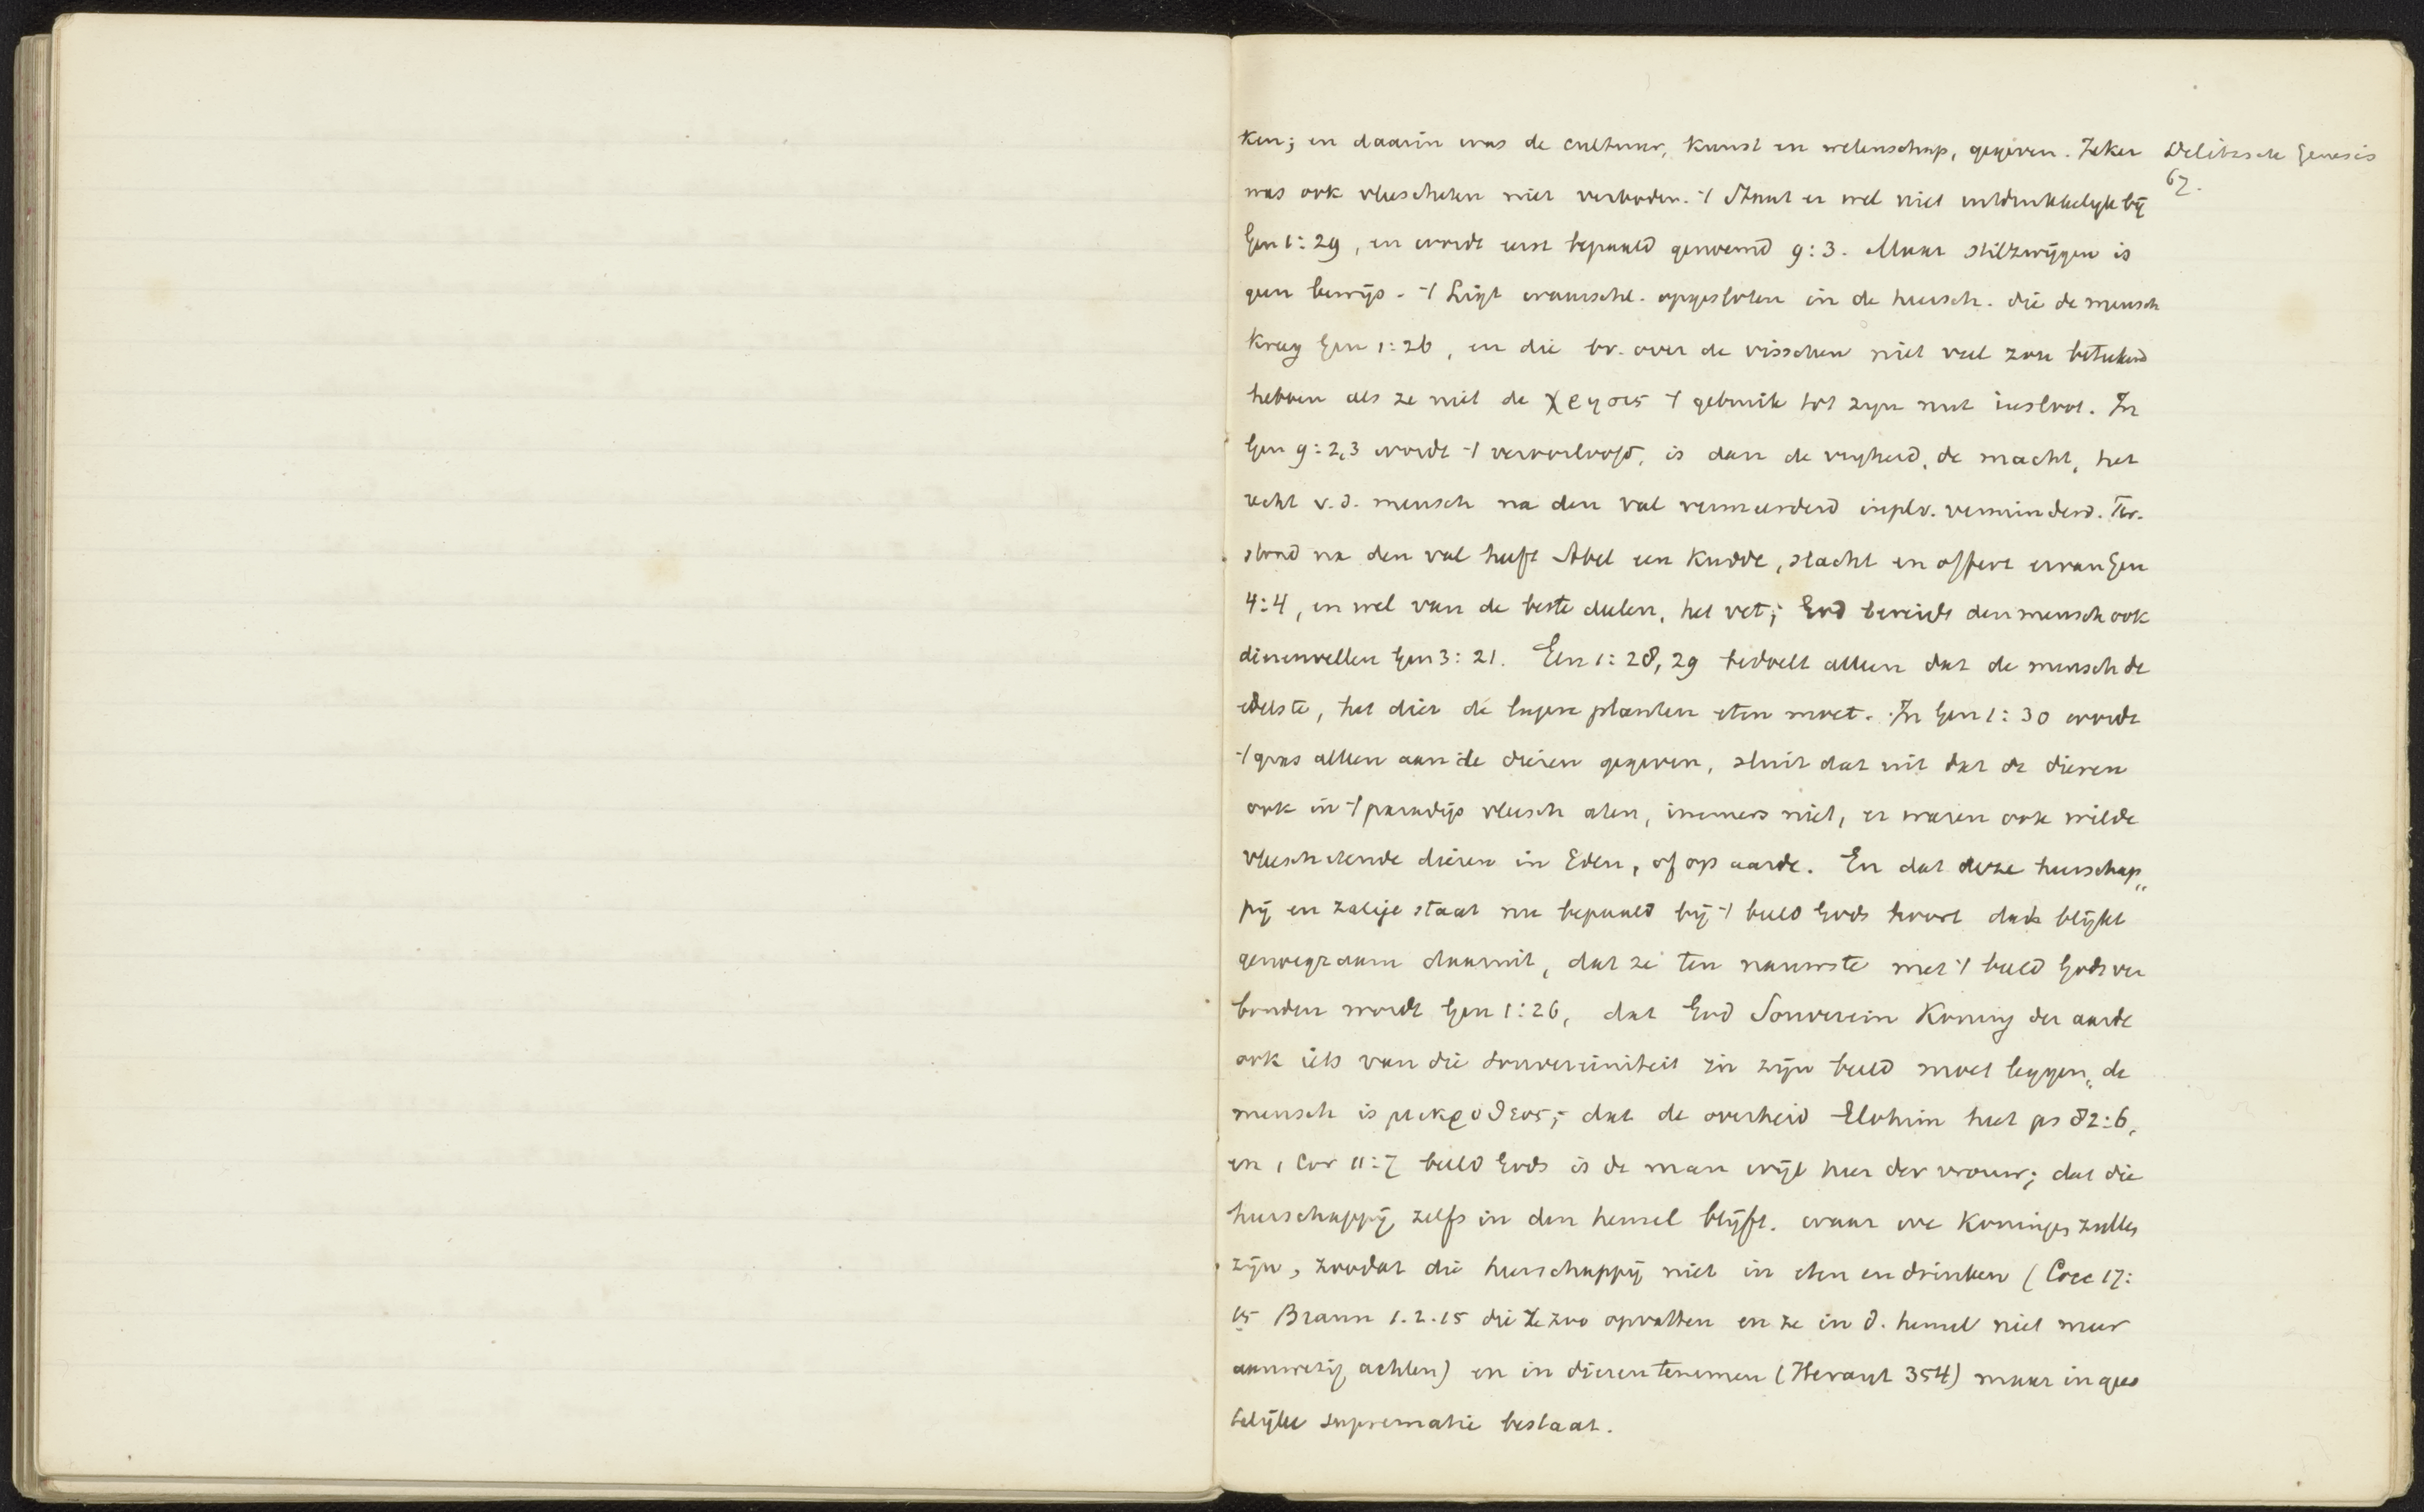 ken; en daarin was de cultuur, kunst en wetenschap, gegeven. Zeker
was ook vleescheten niet verboden. 't Staat er wel niet uitdrukkelijk bij
Gen 1:29, en wordt eerst bepaald genoemd 9:3. Maar stilzwijgen is
geen bewijs. 't Ligt waarschl. opgesloten in de heersch. die de mensch
kreeg Gen 1:26, en die bv. over de visschen niet veel zou beteekend
hebben als ze niet de χρησις 't gebruik tot zijn nut insloot. In
Gen 9:2,3 wordt 't veroorloofd, is dan de vrijheid, de macht, het
recht v.d. mensch na den val vermeerderd inplv. verminderd. Ter.
stond na den val heeft Abel een kudde, slacht en offert ervan Gen
4:4, en wel van de beste deelen, het vet; God bereidt den mensch ook
dierenvellen Gen 3:21. Gen 1:28,29 bedoelt alleen dat de mensch de
edelste, het dier de lagere planten eten moet. In Gen 1:30 wordt
't gras alleen aan de dieren gegeven, sluit dat uit dat de dieren
ook in 't paradijs vleesch aten, immers niet, er waren ook wilde
vleeschetende dieren in Eden, of op aarde. En dat deze heerschap„
pij en zalige staat nu bepaald bij 't beeld Gods hoort dat blijkt
genoegzaam daaruit, dat ze ten nauwste met 't beeld Gods ver
bonden wordt Gen 1:26, dat God Souverein Koning der aarde
ook iets van die souvereiniteit in zijn beeld moet leggen„ de
mensch is μικροθεος; dat de overheid Elohim heet ps 82:6,
en 1 Cor 11:7 beeld Gods is de man wijl heer der vrouw; dat die
heerschappij zelfs in den hemel blijft. waar we Koningen zullen
zijn, zoodat die heerschappij niet in eten en drinken (Cocc 17:
15 Braun 1.2.15 die ze zoo opvatten en ze in d. hemel niet meer
aanwezig achten) en in dieren temmen (Heraut 354) maar in gees
telijke suprematie bestaat.
Delitzsch Genesis
67.